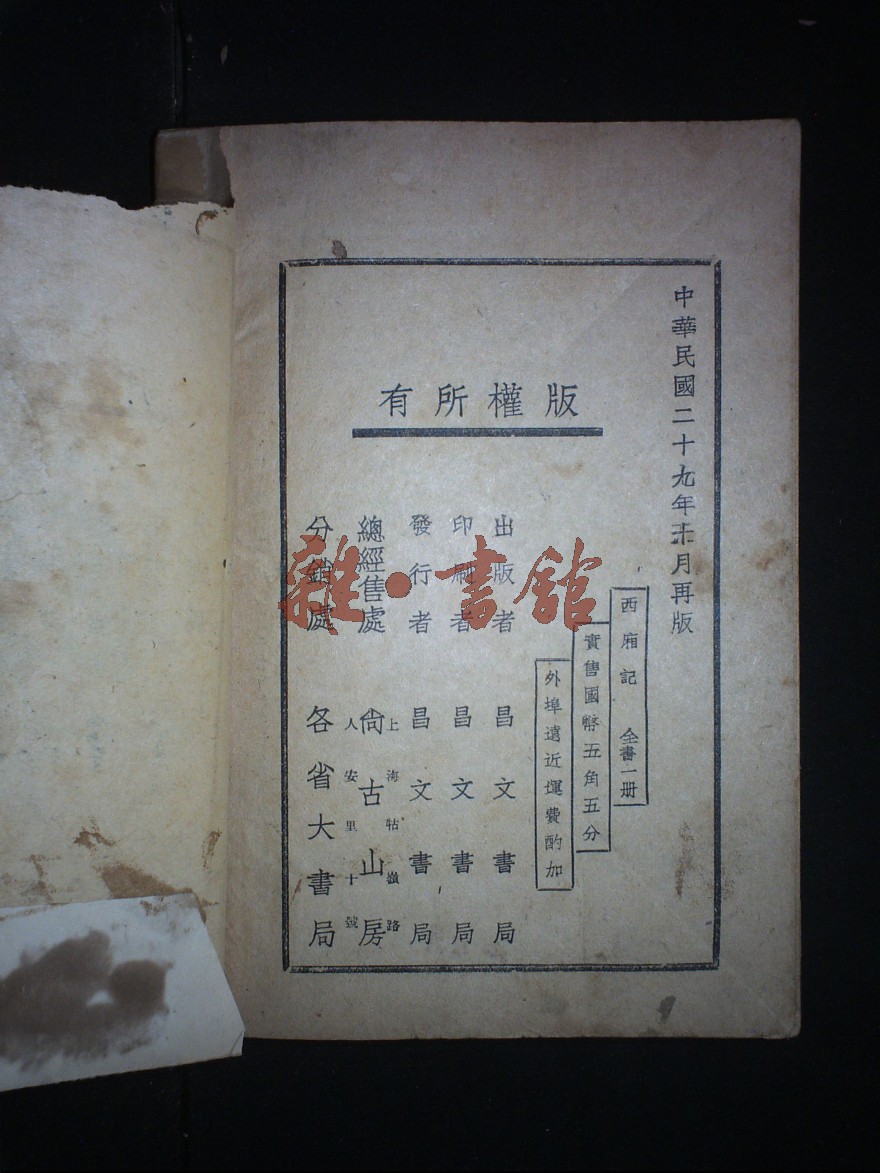 中華民國二十九年 月再版
西廂記 全書一册
實售國幣五角五分
外埠遠近運費酌加
版權所有
出版者 昌文書局
印刷者 昌文書局
發行者 昌文書局
總經售處 尙古山房
上海牯嶺路
人安里十號
分銷處 各省大書局
雜·書館